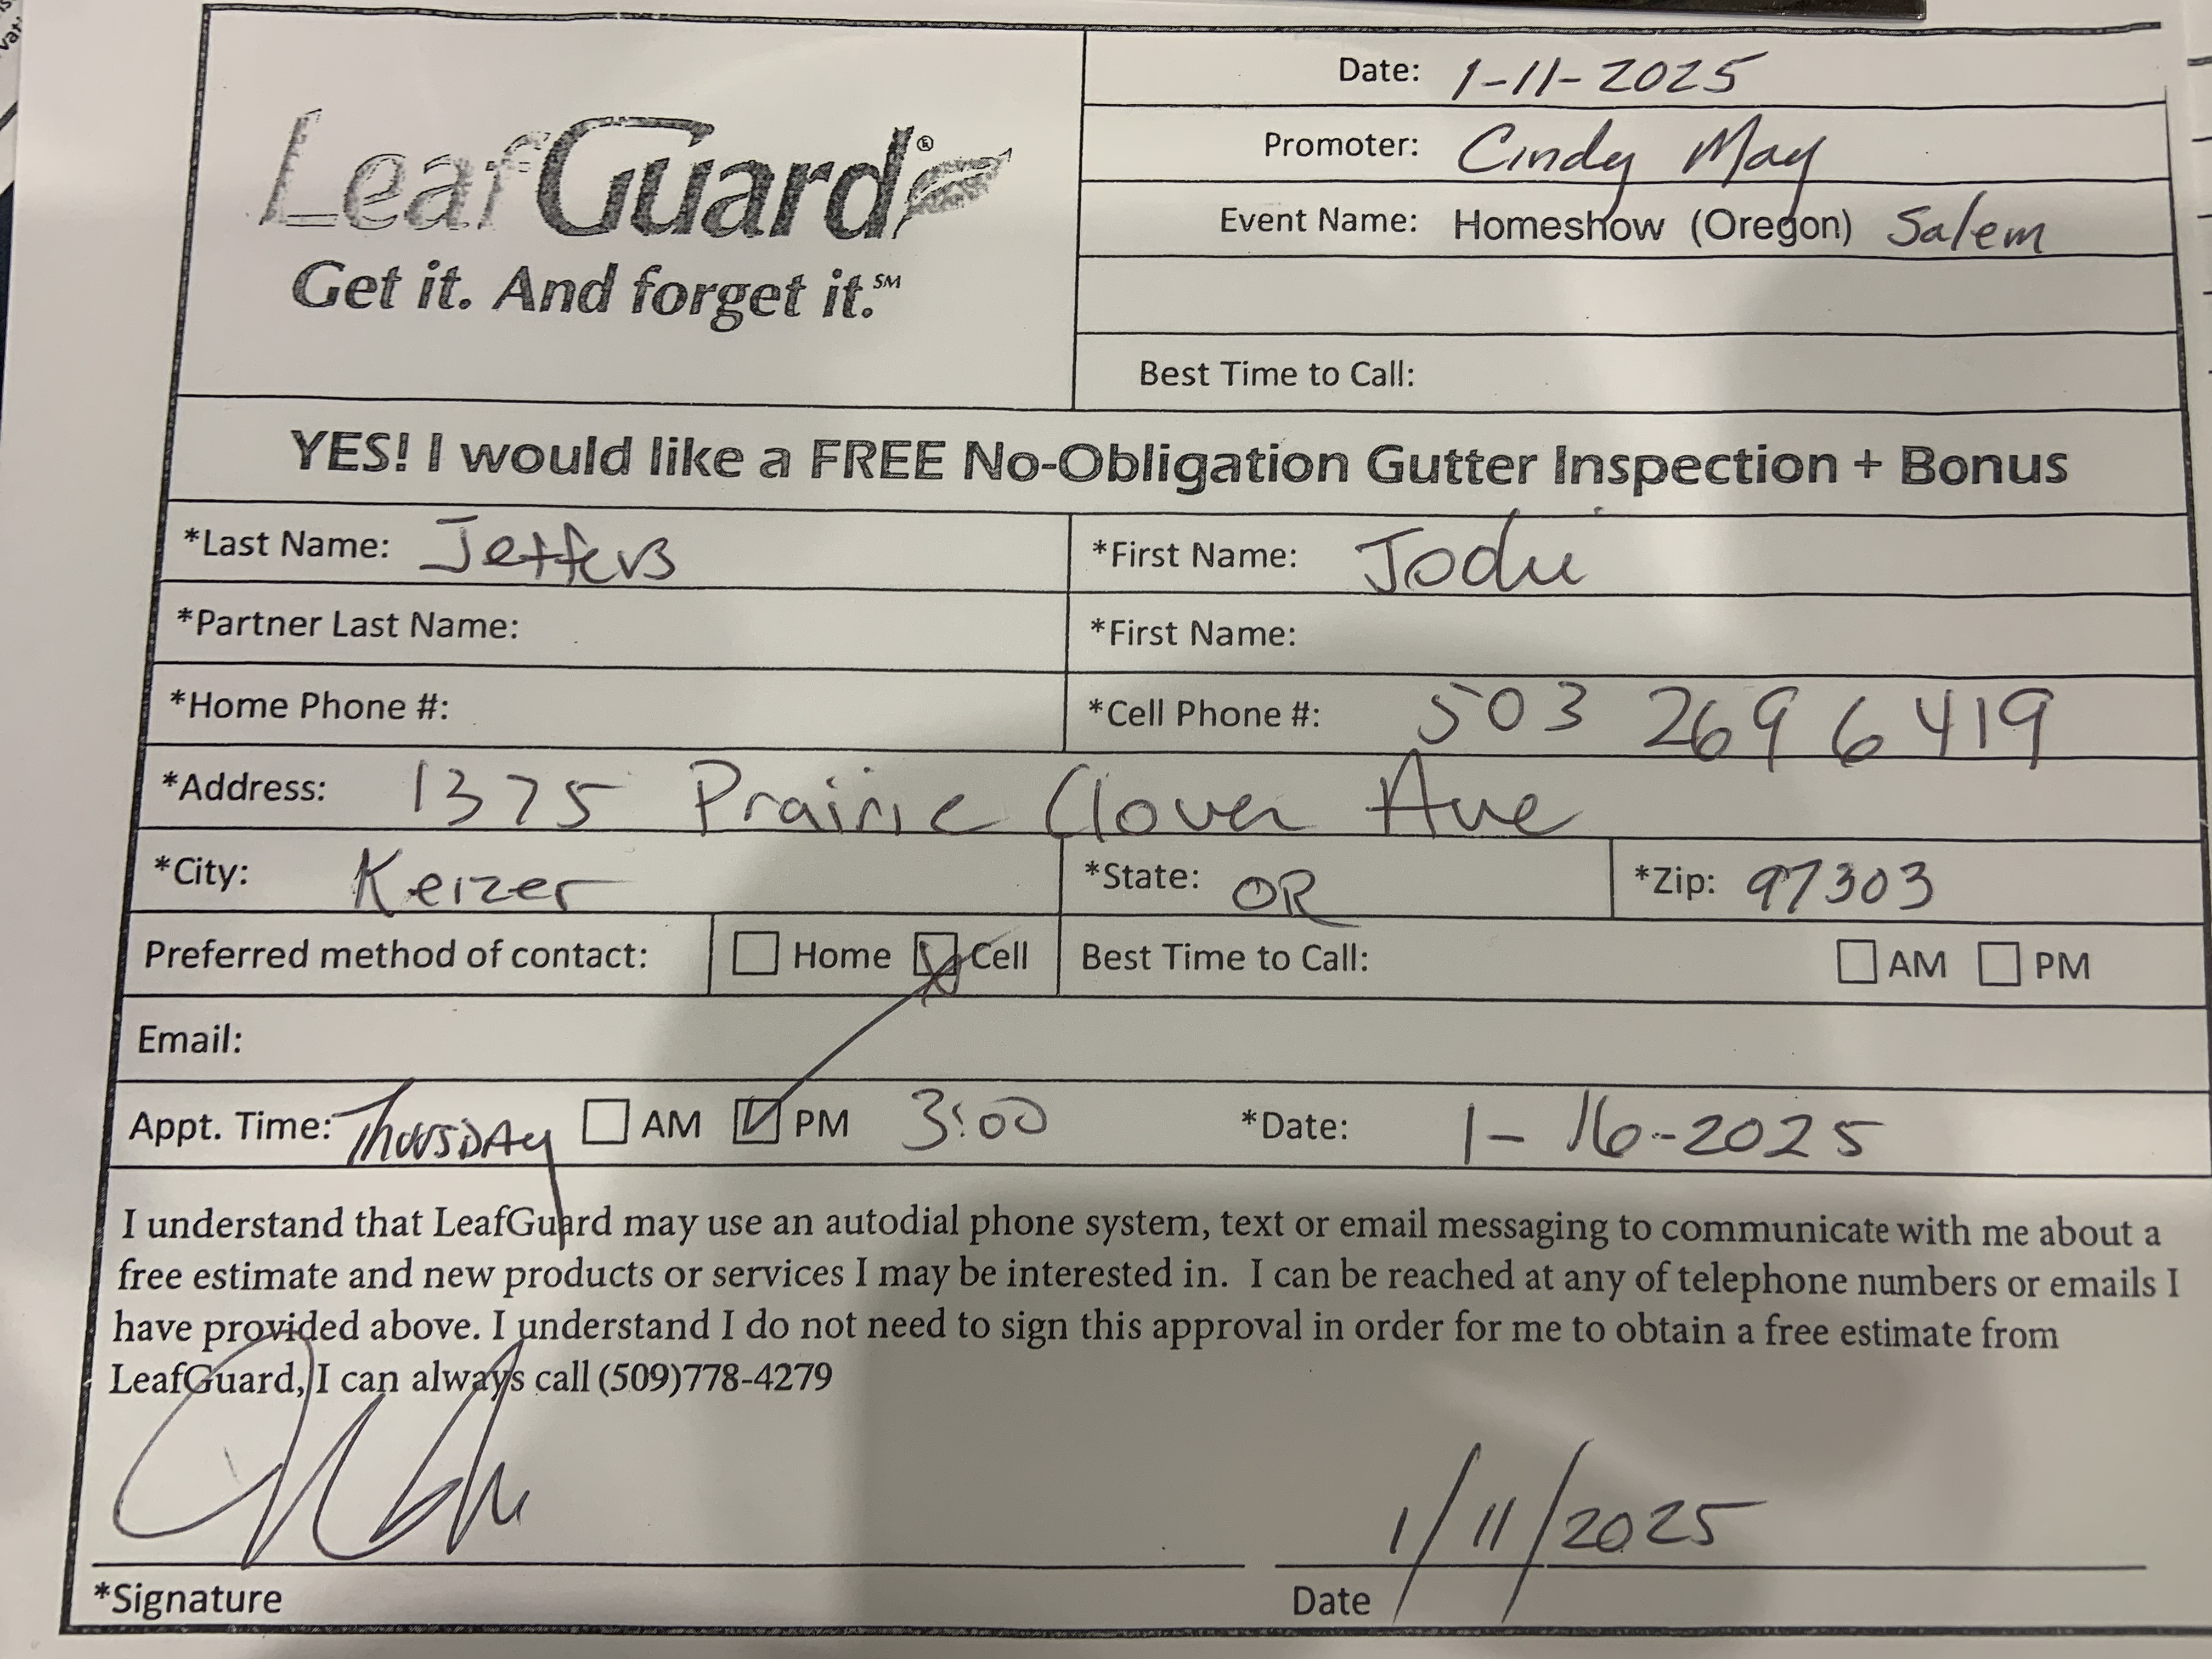 LeafGuard®
Get it. And forget it.℠
Date: 1-11-2025
Promoter: Cindy May
Event Name: Homeshow (Oregon) Salem
Best Time to Call:
YES! I would like a FREE No-Obligation Gutter Inspection + Bonus
*Last Name: Jeffers *First Name: Jodi
*Partner Last Name: *First Name:
*Home Phone #: *Cell Phone #: 503 269 6419
*Address: 1375 Prairie Clover Ave
*City: Keizer *State: OR *Zip: 97303
Preferred method of contact: ☐ Home ☑ Cell Best Time to Call: ☐ AM ☐ PM
Email:
Appt. Time: Thursday ☐ AM ☑ PM 3:00 *Date: 1-16-2025
I understand that LeafGuard may use an autodial phone system, text or email messaging to communicate with me about a
free estimate and new products or services I may be interested in. I can be reached at any of telephone numbers or emails I
have provided above. I understand I do not need to sign this approval in order for me to obtain a free estimate from
LeafGuard, I can always call (509)778-4279
1/11/2025
*Signature Date